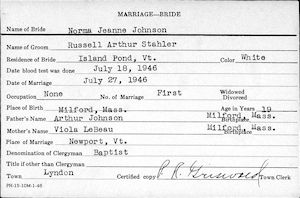 MARRIAGE—BRIDE
Name of Bride Norma Jeanne Johnson
Name of Groom Russell Arthur Stahler
Residence of Bride Island Pond, Vt. Color White
Date blood test was done July 18, 1946
Date of Marriage July 27, 1946
Occupation None No. of Marriage First Widowed Divorced
Place of Birth Milford, Mass. Age in Years 19
Father's Name Arthur Johnson Birthplace Milford, Mass.
Mother's Name Viola LeBeau Birthplace Milford, Mass.
Place of Marriage Newport, Vt.
Denomination of Clergyman Baptist
Title if other than Clergyman
Town Lyndon Certified copy P. R. Griswold Town Clerk